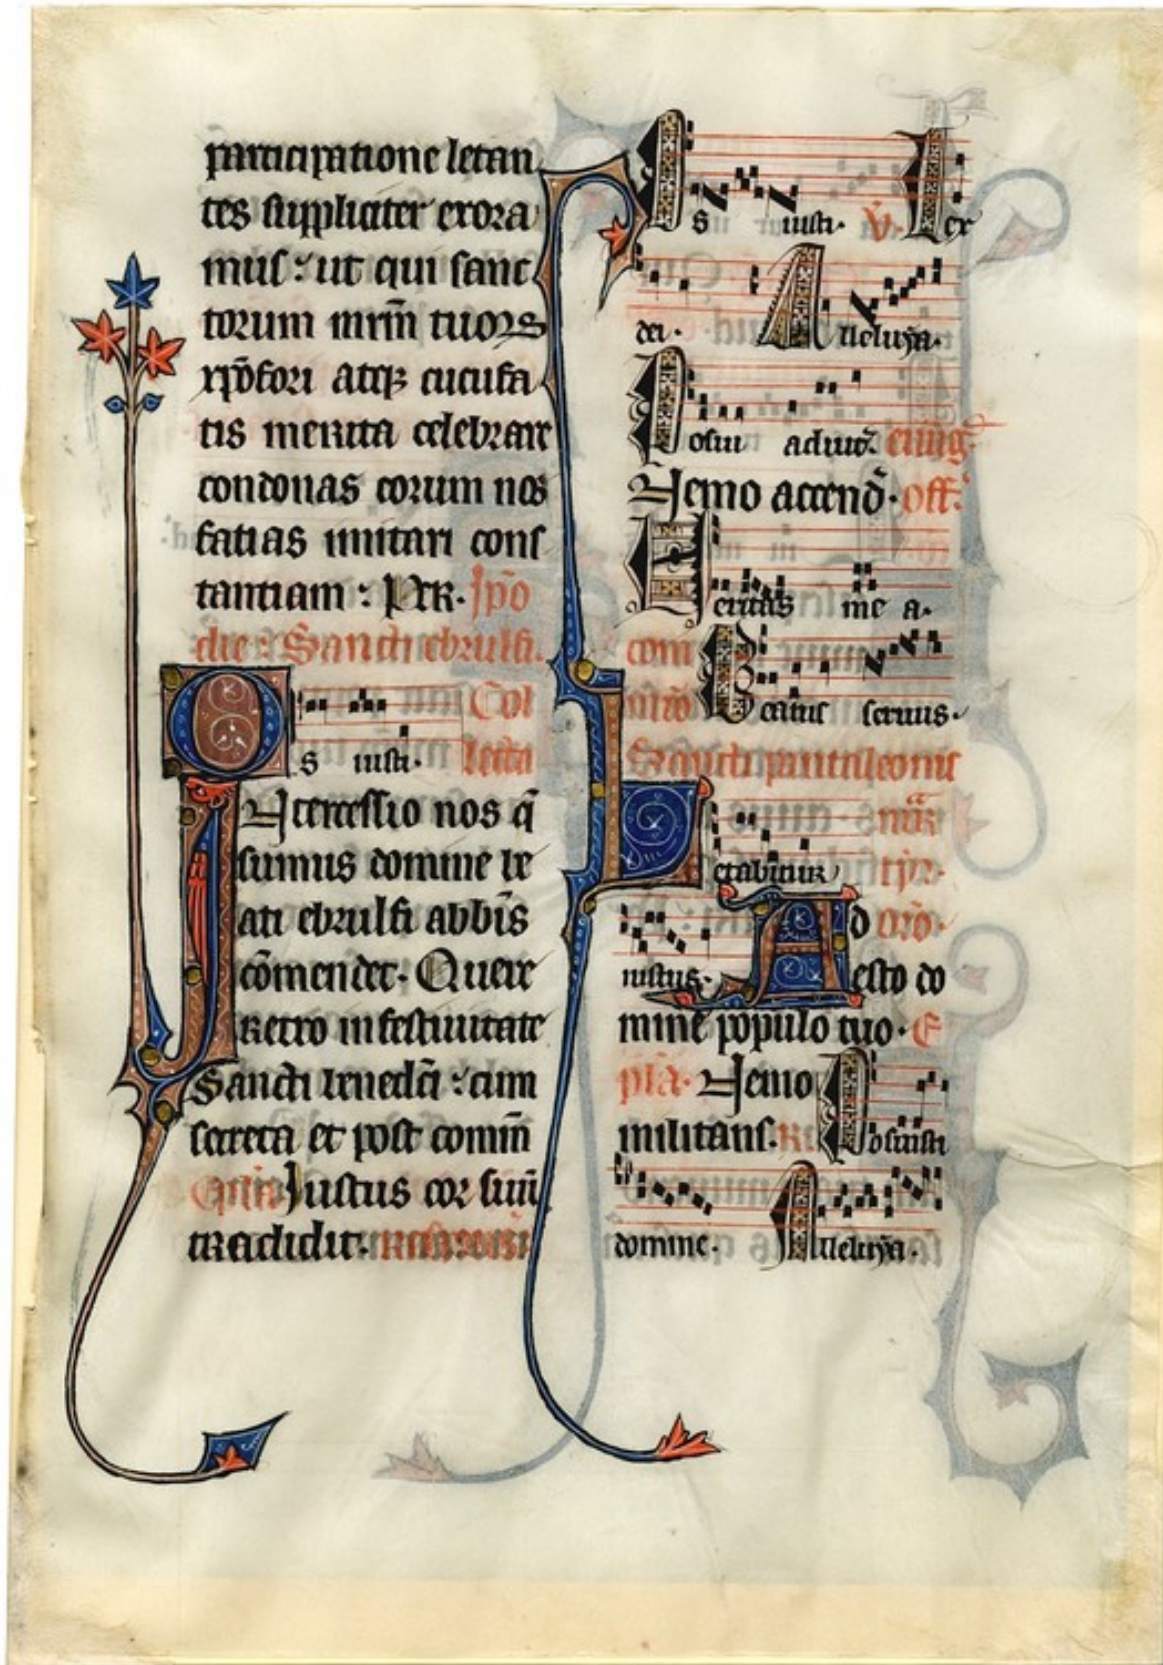 participatione letan
tes suppliciter exora
mus : ut qui sanc
torum mrm̄ tuoꝝ
xp̄ofori atqꝫ cucufa
tis merita celebrare
condonas eorum nos
fatias imitari cons
tantiam : Per. Ip̄o
die : Sancti ebrulfi.
Os iusti. Col
lecta
Intercessio nos q̄
sumus domine be
ati ebrulfi abbīs
cōmendet. Quere
retro in festiuitate
Sancti benedc̄i : cum
secreta et post comm̄
Ep̄la Iustus cor suū
tradidit.
Os iusti. V̄. Lex
dei. Alleluya.
Posui adiut̄. euuāg.
Nemo accend̄. off.
Ueritas me a.
com
mūo Beatus seruus.
Sancti pantaleonis
mar̄
Letabitur tyr.
iustus. Ad oro.
esto do
mine populo tuo. E
pl̄a. Nemo
militans. R̄ Posuisti
domine. Alleluya.